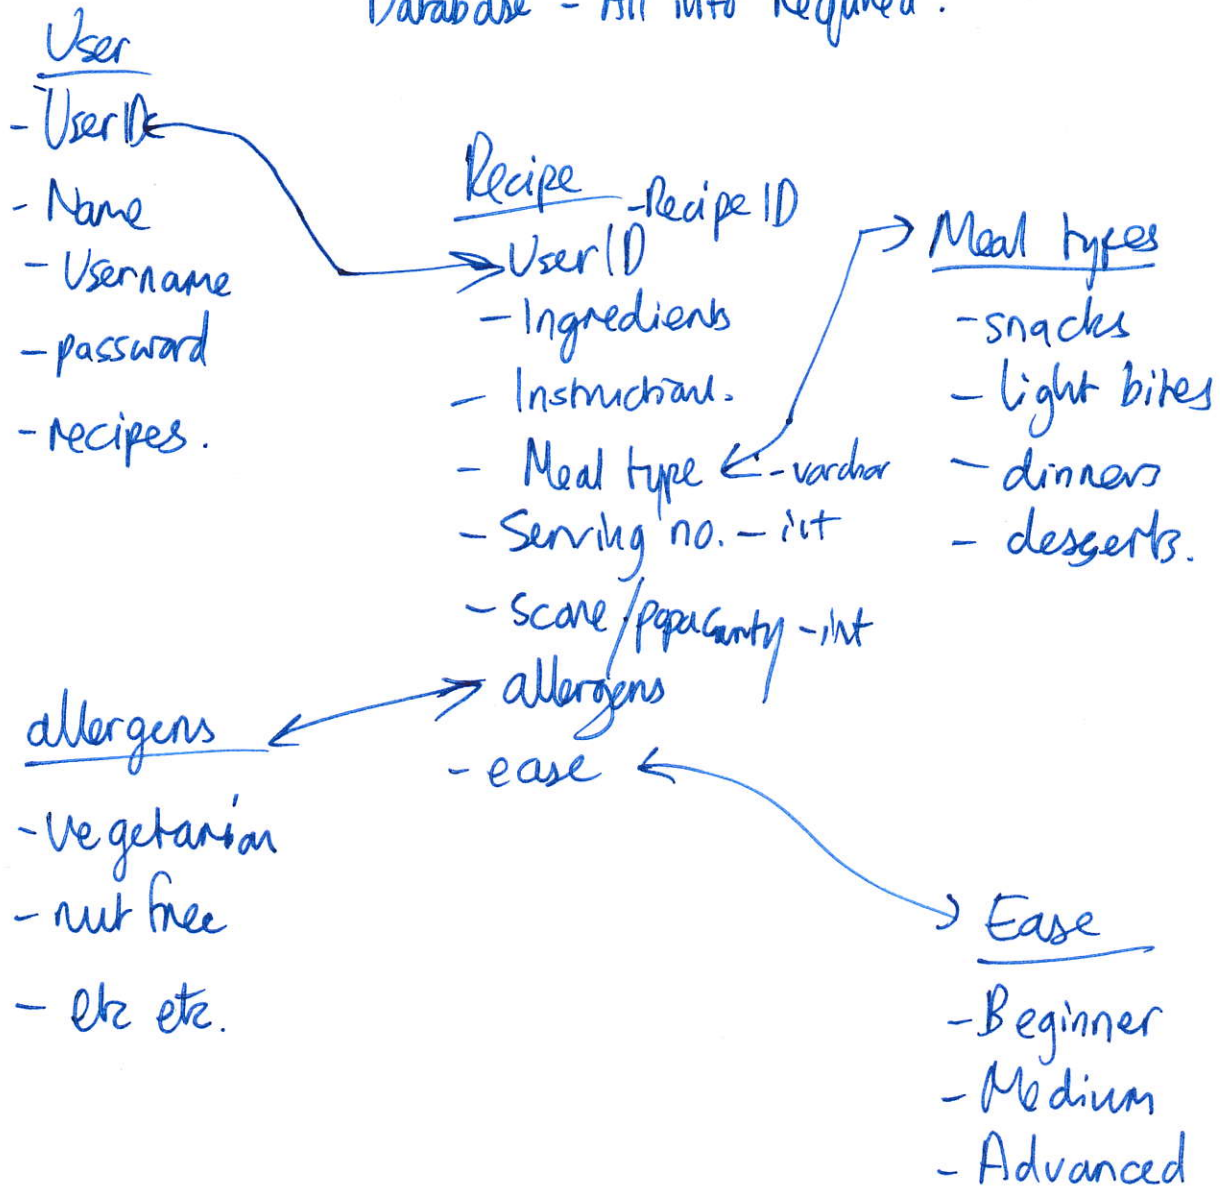 Database - All info Required.
User
- UserID
- Name
- Username
- password
- recipes.
Recipe - Recipe ID
UserID
- Ingredients
- Instructions.
- Meal type - varchar
- Serving no. - int
- score / popularity - int
allergens
- ease
Meal types
- snacks
- light bites
- dinners
- desserts.
allergens
- vegetarian
- nut free
- etc etc.
Ease
- Beginner
- Medium
- Advanced